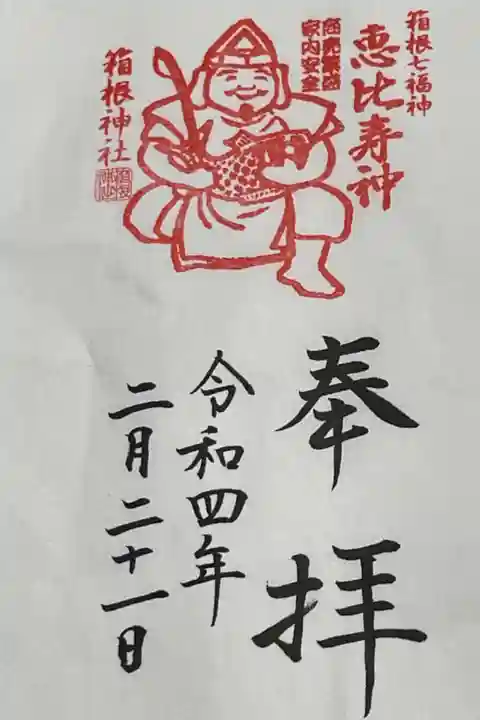 箱根七福神
恵比寿神
商売繁盛
家内安全
箱根神社
奉拝
令和四年
二月二十一日